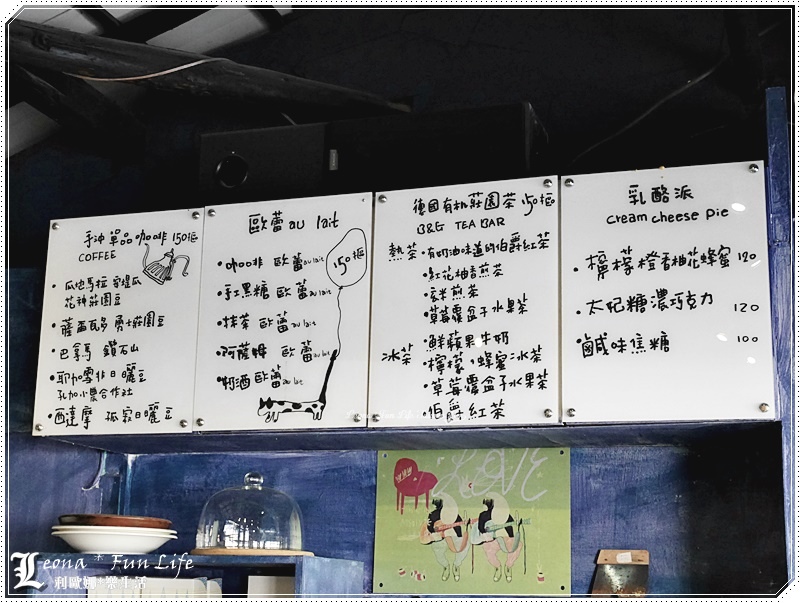 手沖單品咖啡 150橱
COFFEE
• 瓜地馬拉 安堤瓜
花神莊園豆
• 薩爾瓦多 勇士莊園豆
• 巴拿馬 鑽石山
• 耶加雪菲日曬豆
孔加小農合作社
• 西達摩 孤寂日曬豆
歐蕾au lait
• 咖啡 歐蕾au lait
• 手工黑糖 歐蕾au lait
• 抹茶 歐蕾au lait
• 阿薩姆 歐蕾au lait
• 奶酒歐蕾au lait
150
德國有机莊園茶 150
B&G TEA BAR
熱茶 • 有奶油味道的伯爵紅茶
• 紅花柚香煎茶
• 玄米煎茶
• 草莓覆盆子水果茶
• 鮮蘋果牛奶
冰茶 • 檸檬,蜂蜜冰茶
• 草莓覆盆子水果茶
• 伯爵紅茶
乳酪派
cream cheese pie
• 檸檬橙香柚花蜂蜜 120
• 太妃糖濃巧克力 120
• 鹹味焦糖 100
LOVE
Leona * Fun Life
莉歐娜*樂生活